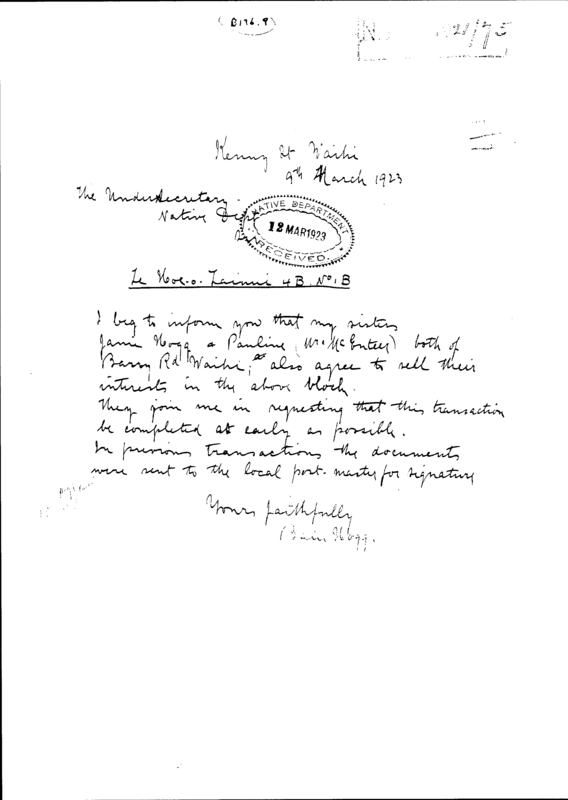 (B176.9)
N. 1921/75
Kenny St Waihi
9th March 1923
The Undersecretary.
Native Dept
NATIVE DEPARTMENT
12 MAR 1923
RECEIVED.
Te Hoe.o. Tainui 4B. No.1B
I beg to inform you that my sisters
Janie Hogg & Pauline (Mrs McEnteer) both of
Barry Rd Waihi, also agree to sell their
interests in the above block.
They join me in requesting that this transaction
be completed at early as possible.
In previous transactions the documents
were sent to the local post-master for signature
Yours faithfully
Hogg.